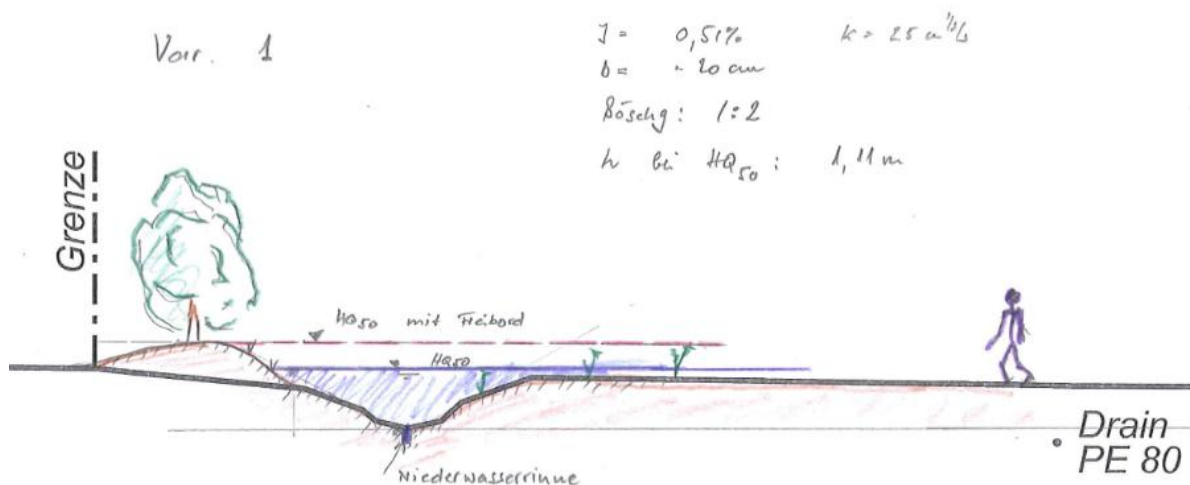 Var. 1
J = 0,51% k = 25 m^1/3/s
b = ~ 20 cm
Böschg: 1:2
h bei HQ50: 1,11 m
Grenze
HQ50 mit Freibord
HQ50
Niederwasserrinne
Drain
PE 80